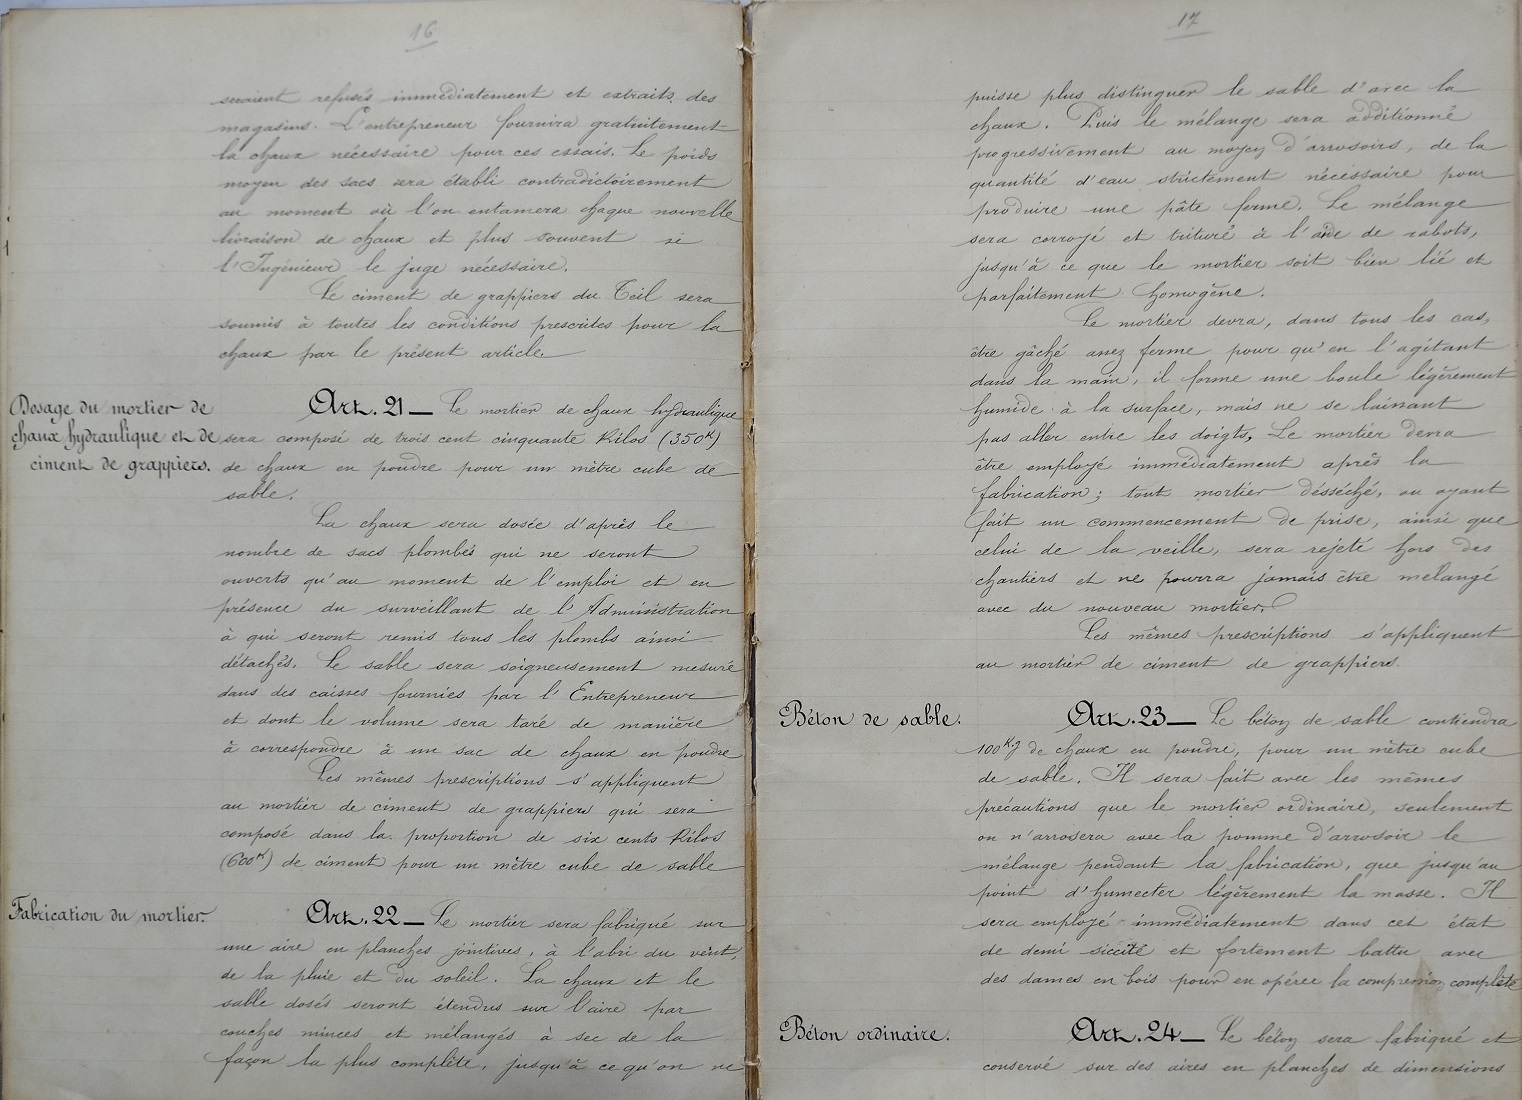 16
seraient refusés immédiatement et extraits des
magasins. L'entrepreneur fournira gratuitement
la chaux nécessaire pour ces essais. Le poids
moyen des sacs sera établi contradictoirement
au moment où l'on entamera chaque nouvelle
livraison de chaux et plus souvent si
l'Ingénieur le juge nécessaire.
Le ciment de grappiers du Teil sera
soumis à toutes les conditions prescrites pour la
chaux par le présent article.
Dosage du mortier de
chaux hydraulique et de
ciment de grappiers.
Art. 21 — Le mortier de chaux hydraulique
sera composé de trois cent cinquante Kilos (350K)
de chaux en poudre pour un mètre cube de
sable.
La chaux sera dosée d'après le
nombre de sacs plombés qui ne seront
ouverts qu'au moment de l'emploi et en
présence du surveillant de l'Administration
à qui seront remis tous les plombs ainsi
détachés. Le sable sera soigneusement mesuré
dans des caisses fournies par l'Entrepreneur
et dont le volume sera taré de manière
à correspondre à un sac de chaux en poudre
Les mêmes prescriptions s'appliquent
au mortier de ciment de grappiers qui sera
composé dans la proportion de six cents Kilos
(600K) de ciment pour un mètre cube de sable
Fabrication du mortier.
Art. 22 — Le mortier sera fabriqué sur
une aire en planches jointives, à l'abri du vent,
de la pluie et du soleil. La chaux et le
sable dosés seront étendus sur l'aire par
couches minces et mélangés à sec de la
façon la plus complète, jusqu'à ce qu'on ne
17
puisse plus distinguer le sable d'avec la
chaux. Puis le mélange sera additionné
progressivement au moyen d'arrosoirs, de la
quantité d'eau strictement nécessaire pour
produire une pâte ferme. Le mélange
sera corroyé et trituré à l'aide de rabots,
jusqu'à ce que le mortier soit bien lié et
parfaitement homogène.
Le mortier devra, dans tous les cas,
être gâché assez ferme pour qu'en l'agitant
dans la main, il forme une boule légèrement
humide à la surface, mais ne se laissant
pas aller entre les doigts. Le mortier devra
être employé immédiatement après la
fabrication; tout mortier désséché, ou ayant
fait un commencement de prise, ainsi que
celui de la veille, sera rejeté hors des
chantiers et ne pourra jamais être mélangé
avec du nouveau mortier.
Les mêmes prescriptions s'appliquent
au mortier de ciment de grappiers.
Béton de sable.
Art. 23 — Le béton de sable contiendra
100Kg de chaux en poudre, pour un mètre cube
de sable. Il sera fait avec les mêmes
précautions que le mortier ordinaire, seulement
on n'arrosera avec la pomme d'arrosoir le
mélange pendant la fabrication, que jusqu'au
point d'humecter légèrement la masse. Il
sera employé immédiatement dans cet état
de demi siccité et fortement battu avec
des dames en bois pour en opérer la compression complète
Béton ordinaire.
Art. 24 — Le béton sera fabriqué et
conservé sur des aires en planches de dimensions